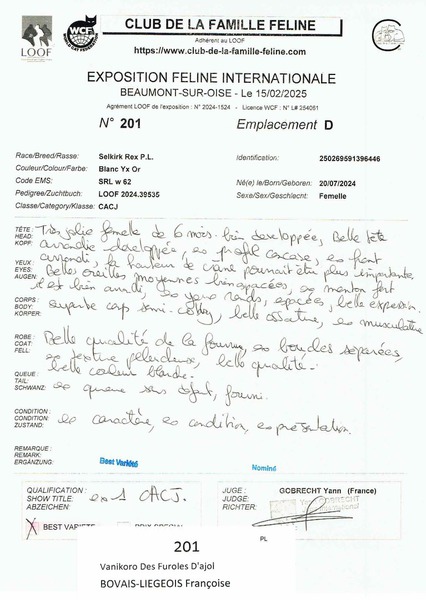 LOOF
WCF
CLUB DE LA FAMILLE FELINE
Adhérent au LOOF
https://www.club-de-la-famille-feline.com
EXPOSITION FELINE INTERNATIONALE
BEAUMONT-SUR-OISE - Le 15/02/2025
Agrément LOOF de l'exposition : N° 2024-1524 - Licence WCF : N° L# 254061
N° 201 Emplacement D
Race/Breed/Rasse: Selkirk Rex P.L. Identification: 250269591396446
Couleur/Colour/Farbe: Blanc Yx Or
Code EMS: SRL w 62 Né(e) le/Born/Geboren: 20/07/2024
Pedigree/Zuchtbuch: LOOF 2024.39535 Sexe/Sex/Geschlecht: Femelle
Classe/Category/Klasse: CACJ
TÊTE : Très jolie femelle de 6 mois bien developpée, Belle tête
HEAD:
KOPF: arrondie developpée, ex profil concave, ex front
YEUX : arrondi, la hauteur de crâne pourrait être plus importante
EYES: Belles oreilles moyennes bien espacées, ex menton fort
AUGEN: et bien arrondi, ex yeux ronds, espacés, belle expression.
CORPS :
BODY: corps semi-cobby, belle ossature, ex musculature
KÖRPER:
ROBE : Belle qualité de la fourrure, ex boucles separées,
COAT:
FELL: ex texture pelucheuse, belle qualité.
belle couleur blanche.
QUEUE :
TAIL: ex queue sans défaut, fournie.
SCHWANZ:
CONDITION :
CONDITION: ex caractère, ex condition, ex présentation.
ZUSTAND:
REMARQUE :
REMARK:
ERGÄNZUNG: Best Variété Nominé
QUALIFICATION : ex 1 CACJ. JUGE : GOBRECHT Yann (France)
SHOW TITLE: JUDGE:
ABZEICHEN: RICHTER:
X BEST VARIETE PRIX SPECIAL
PL
201
Vanikoro Des Furoles D'ajol
BOVAIS-LIEGEOIS Françoise